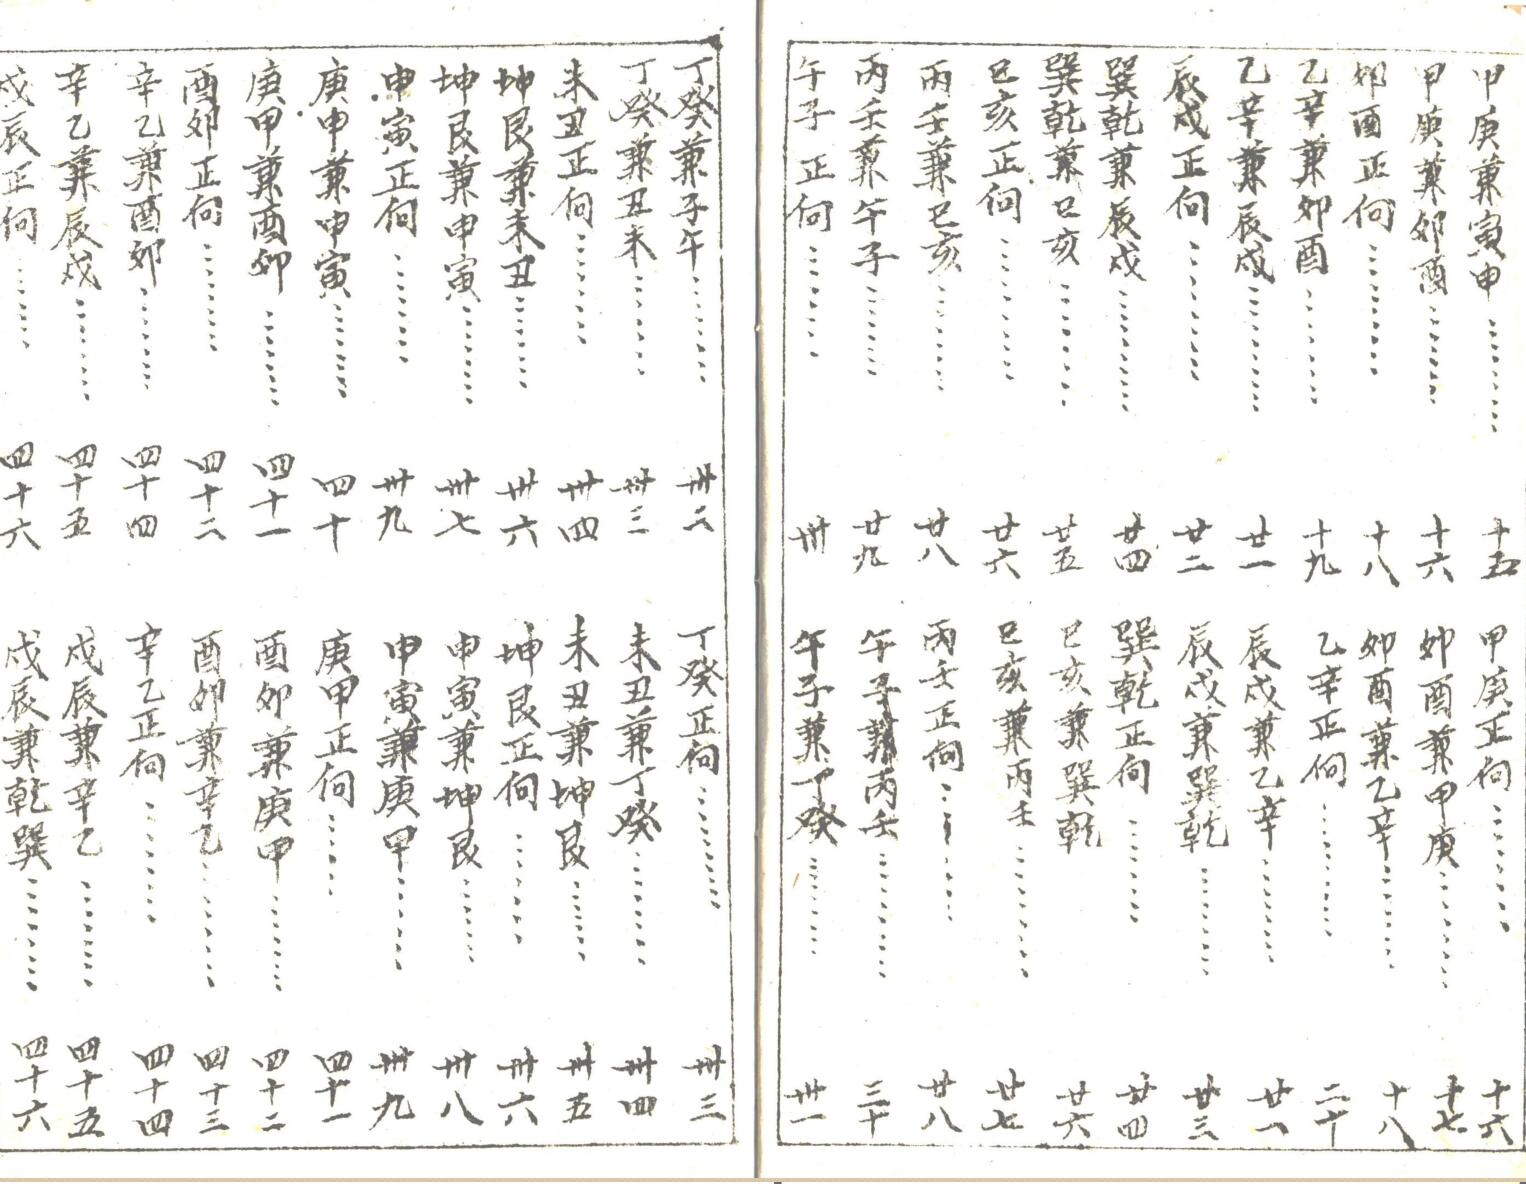 甲庚兼寅申……十五 甲庚正向……十六
甲庚兼卯酉……十六 卯酉兼甲庚……十七
卯酉正向……十八 卯酉兼乙辛……十八
乙辛兼卯酉……十九 乙辛正向……二十
乙辛兼辰戌……廿一 辰戌兼乙辛……廿一
辰戌正向……廿二 辰戌兼巽乾……廿三
巽乾兼辰戌……廿四 巽乾正向……廿四
巽乾兼巳亥……廿五 巳亥兼巽乾……廿六
巳亥正向……廿六 巳亥兼丙壬……廿七
丙壬兼巳亥……廿八 丙壬正向……廿八
丙壬兼午子……廿九 午子兼丙壬……三十
午子正向……卅 午子兼丁癸……卅一
丁癸兼子午……卅二 丁癸正向……卅三
丁癸兼丑未……卅三 未丑兼丁癸……卅四
未丑正向……卅四 未丑兼坤艮……卅五
坤艮兼未丑……卅六 坤艮正向……卅六
坤艮兼申寅……卅七 申寅兼坤艮……卅八
申寅正向……卅九 申寅兼庚甲……卅九
庚申兼申寅……四十 庚甲正向……四十一
庚甲兼酉卯……四十一 酉卯兼庚甲……四十二
酉卯正向……四十二 酉卯兼辛乙……四十三
辛乙兼酉卯……四十四 辛乙正向……四十四
辛乙兼辰戌……四十五 戌辰兼辛乙……四十五
戌辰正向……四十六 戌辰兼乾巽……四十六